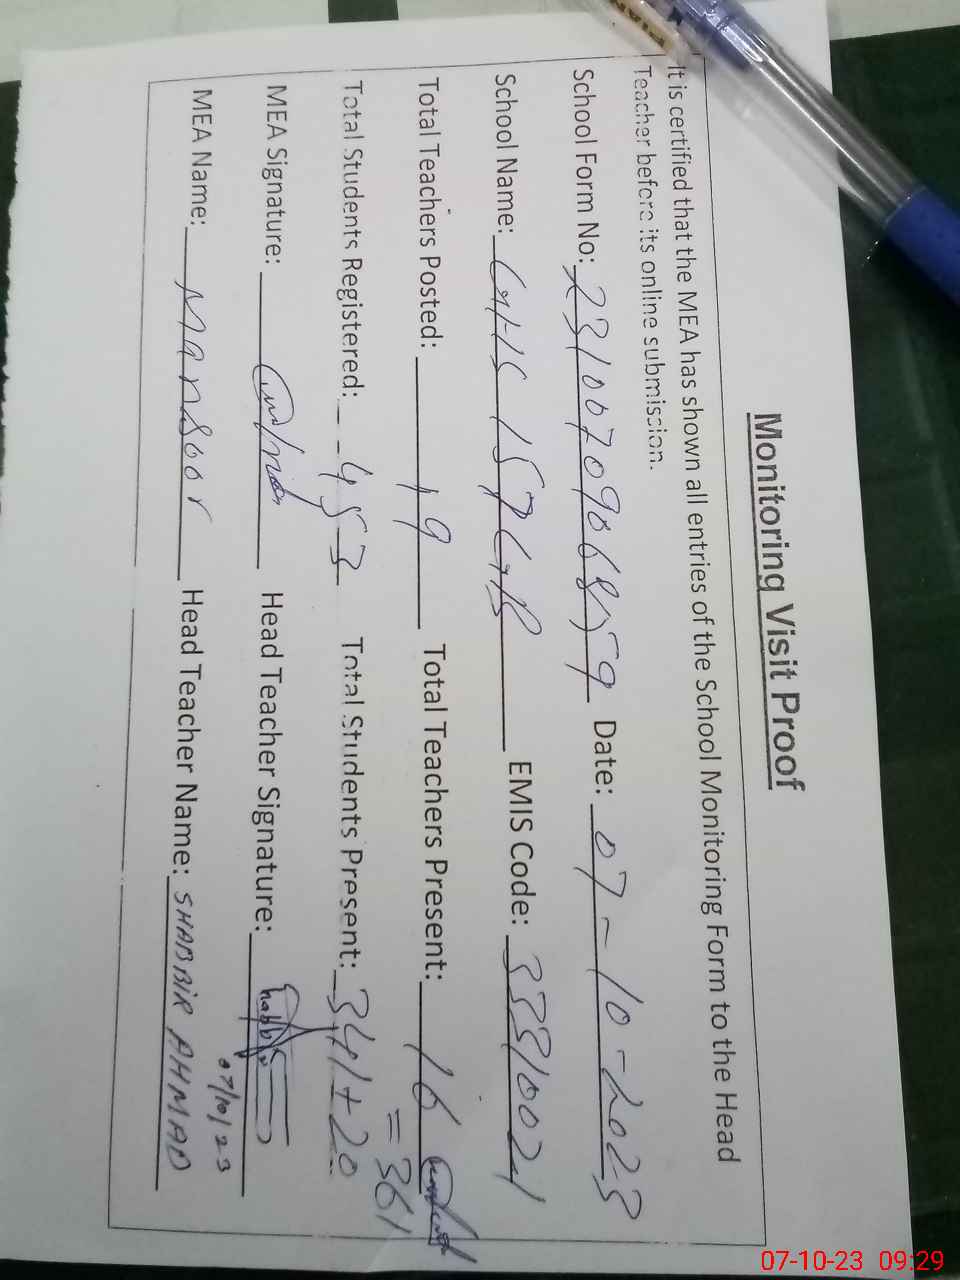 Monitoring Visit Proof
It is certified that the MEA has shown all entries of the School Monitoring Form to the Head
Teacher before its online submission.
School Form No: 23100709068559 Date: 07-10-2023
School Name: GHS 157 GB EMIS Code: 33310021
Total Teachers Posted: 19 Total Teachers Present: 16
= 361
Total Students Registered: 453 Total Students Present: 341+20
MEA Signature: Head Teacher Signature:
07/10/23
MEA Name: Mansoor Head Teacher Name: SHABBIR AHMAD
07-10-23 09:29